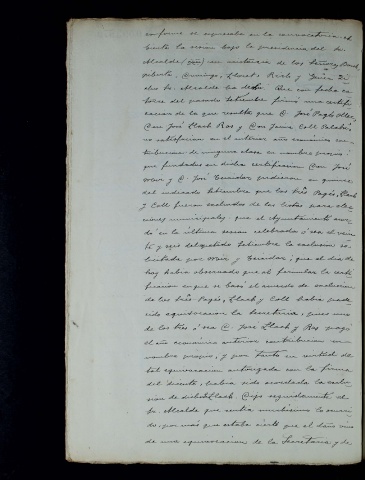 conforme se expresaba en la convocatoria el
bierta la sesion bajo la presidencia del Sr.
Alcalde con asistencia de los Señores
Domingo, Lloret, Rich y
dicho Sr. Alcalde ha dicho: Que con fecha ca
torce del pasado Setiembre firmó una certifi
cacion de la que resulta que D. José Pagés
Don José Llach Ros y Don Jaime Coll
no satisfacian en el anterior año económico con
tribucion de ninguna clase en nombre propio:
que fundados en dicha certificacion Don José
y D. José pidieron en
del indicado Setiembre que los tres Pagés, Llach
y Coll fueran excluidos de las listas para elec
ciones municipales; que el Ayuntamiento acor
dó en la última sesion celebrada ó sea el vein
te y seis del pasado Setiembre la exclusion so
licitada por y que el dia de
hoy habia observado que al formular la certi
ficacion en que se basó el acuerdo de exclusion
de los tres Pagés, Llach y Coll habia pade
cido equivocacion la Secretaria, pues uno
de los tres ó sea D. José Llach y Ros pagó
el año económico anterior contribucion en
nombre propio, y por tanto en virtud de
tal equivocacion autorizada con la firma
del dicente, habia sido acordada la exclu
sion de dicho Llach. seguidamente el
Sr. Alcalde que sentia muchísimo lo ocurri
do, por más que estaba cierto que el
de una equivocacion de la Secretaria, y de